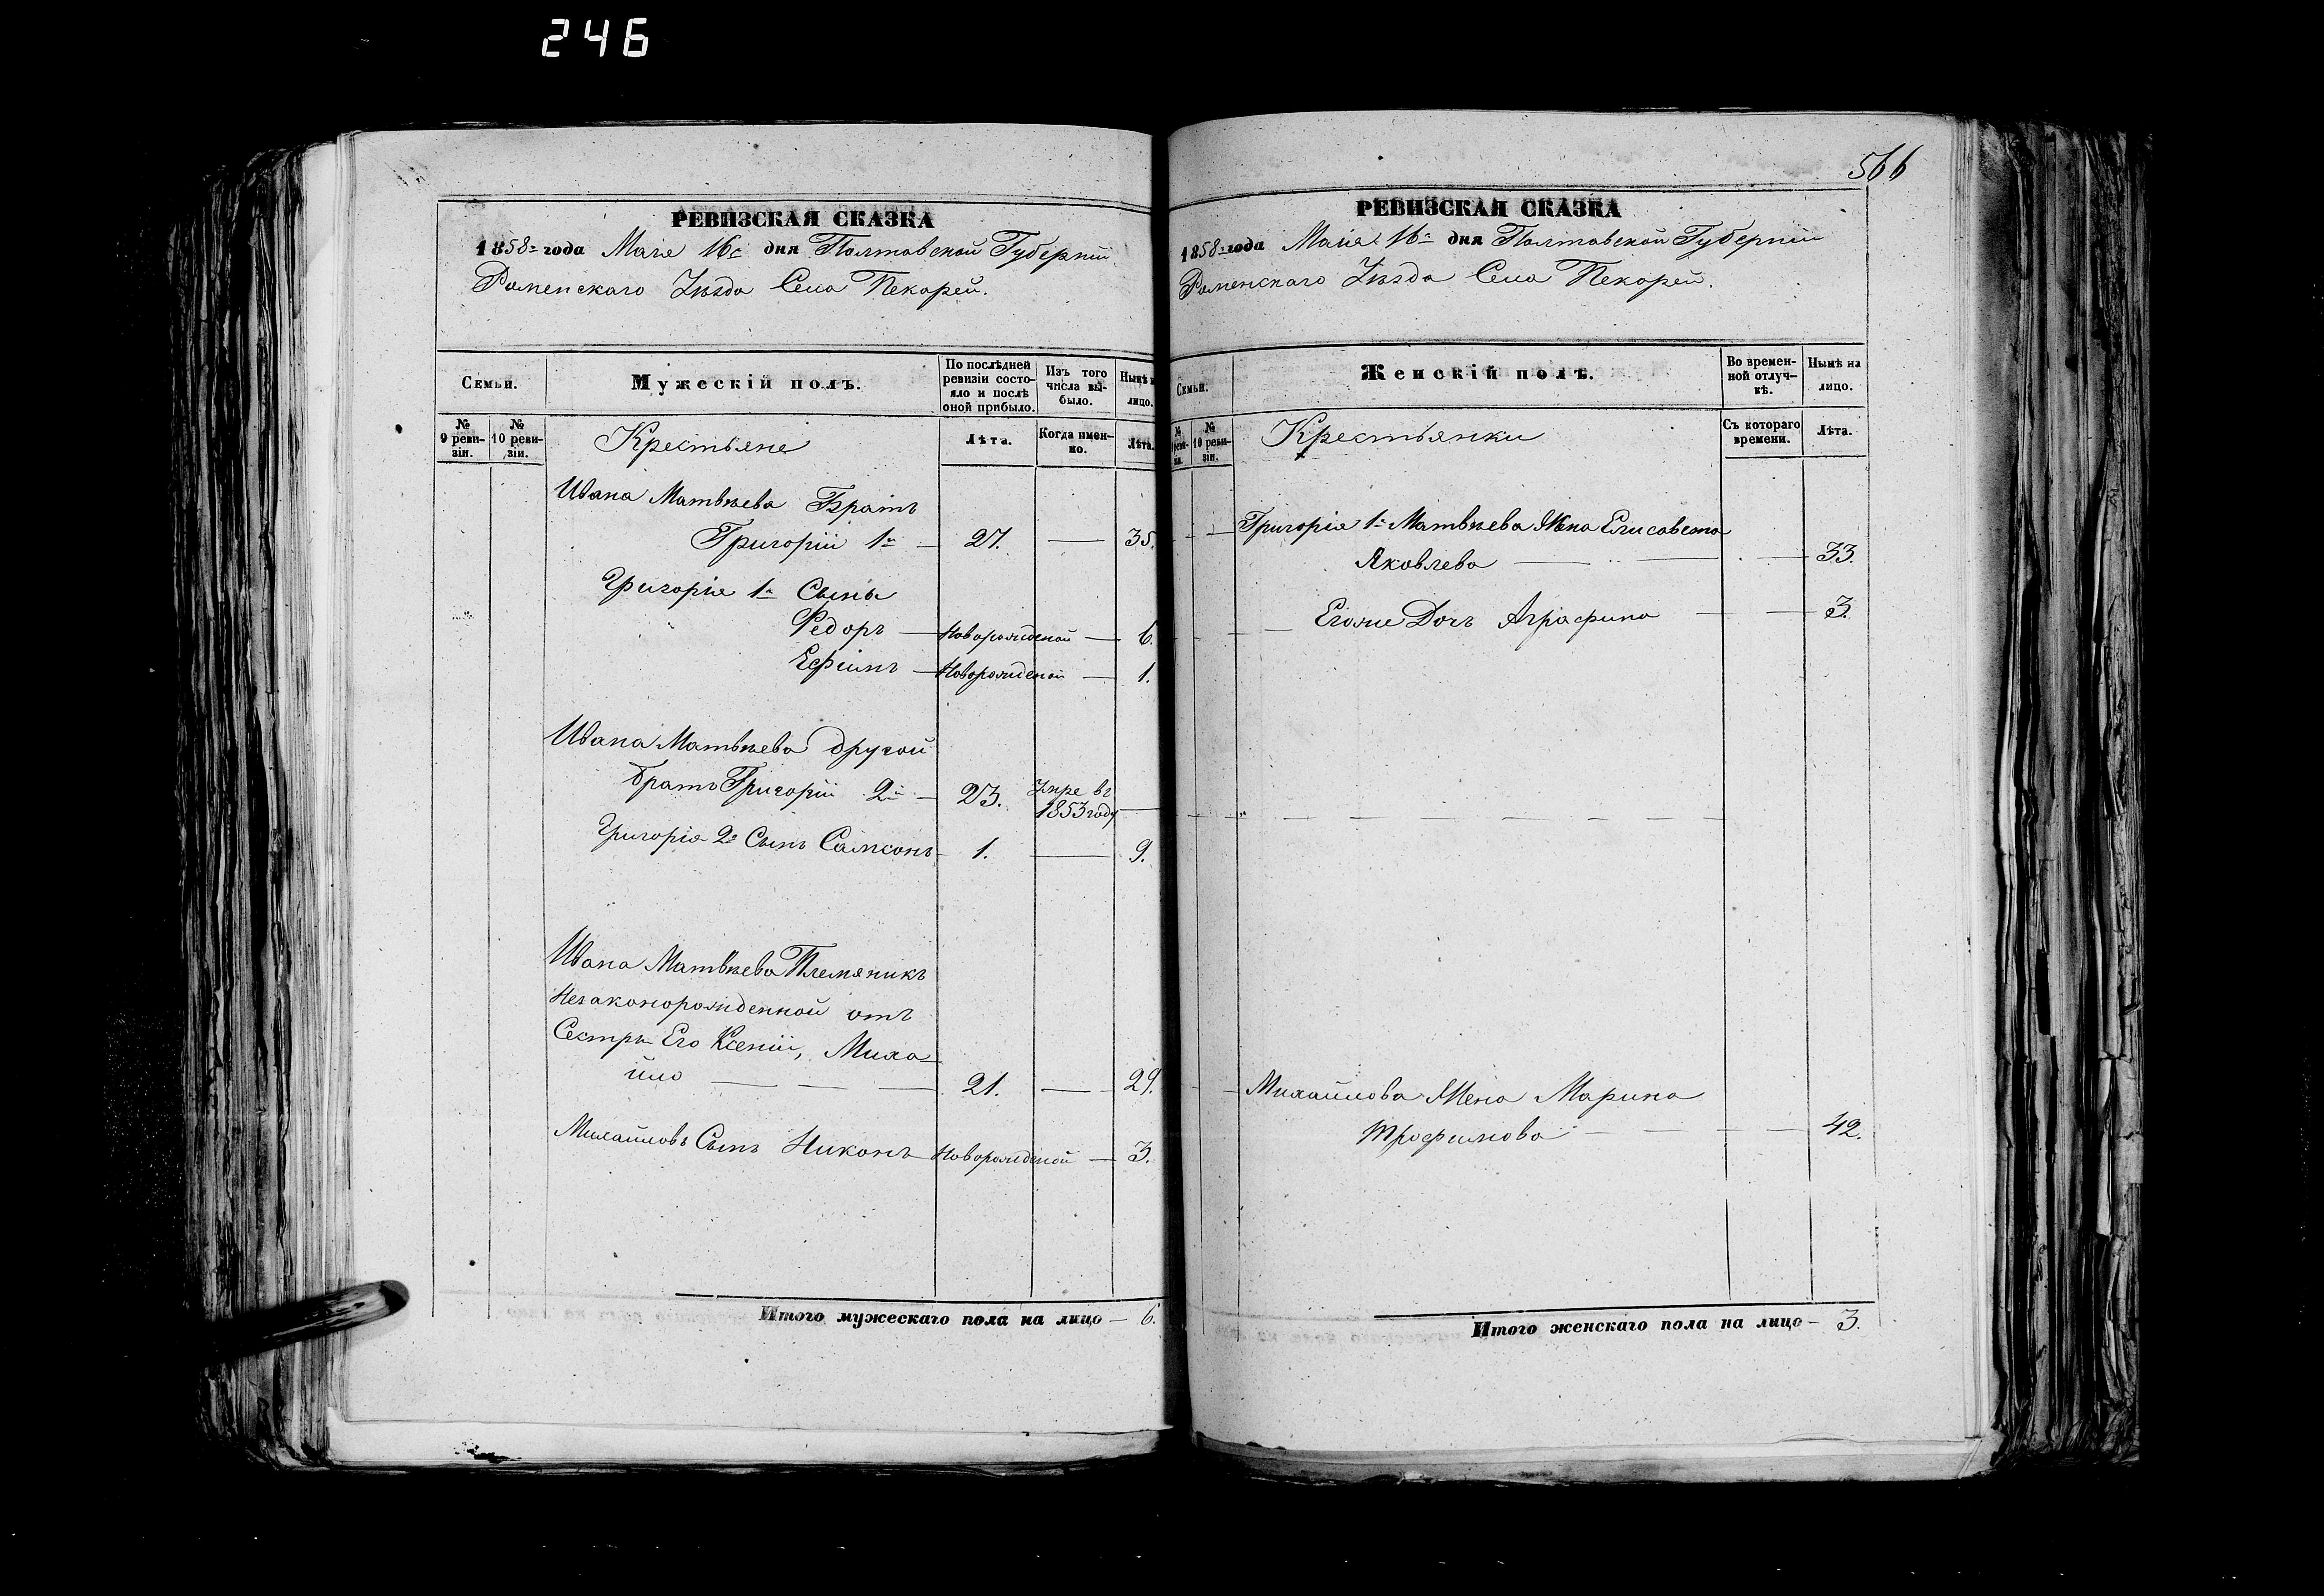 246
РЕВИЗСКАЯ СКАЗКА
1858 года Маія 16 дня Полтавской Губерніи
Роменскаго Уѣзда Села Пекарей.
Семьи.
Мужескій полъ.
По послѣдней ревизіи состояло и послѣ оной прибыло.
Изъ того числа выбыло.
Нынѣ на лицо.
№ 9 ревизіи.
№ 10 ревизіи.
Крестьяне
Лѣта.
Когда именно.
Лѣта.
Ивана Матвѣева Братъ
Григорій 1й — 27. — 35.
Григорія 1го Сыны
Федоръ — Новорожденой — 6.
Ефимъ — Новорожденой — 1.
Ивана Матвѣева другой
братъ Григорій 2й — 23. Умре въ 1853 году —
Григорія 2го Сынъ Самсонъ 1. — 9.
Ивана Матвѣева Племяникъ
Незаконорожденной отъ
Сестры Его Ксеніи, Миха-
йло — — — 21. — 29.
Михайловъ Сынъ Никонъ Новорожденой — 3.
Итого мужескаго пола на лицо — 6.
566
РЕВИЗСКАЯ СКАЗКА
1858 года Маія 16 дня Полтавской Губерніи
Роменскаго Уѣзда Села Пекарей.
Семьи.
Женскій полъ.
Во временной отлучкѣ.
Нынѣ на лицо.
№ 10 ревизіи.
Крестьянки
Съ котораго времени.
Лѣта.
Григорія 1го Матвѣева Жена Елисавета
Яковлева — — — 33.
Егоже Дочь Аграфина — — 3.
Михайлова Жена Марина
Трофимова — — — 42.
Итого женскаго пола на лицо — 3.